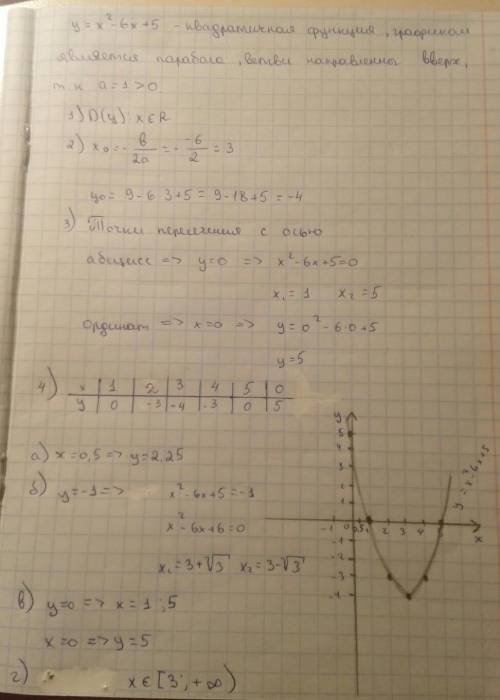 y = x² - 6x + 5 - квадратичная функция, графиком
является парабола, ветви направленны вверх,
т.к a = 1 > 0
1) D(y): x ∈ R
2) x₀ = - b/2a = - -6/2 = 3
y₀ = 9 - 6·3 + 5 = 9 - 18 + 5 = -4
3) Точки пересечения с осью
абсцисс => y = 0 => x² - 6x + 5 = 0
x₁ = 1 x₂ = 5
ординат => x = 0 => y = 0² - 6·0 + 5
y = 5
4) x | 1 | 2 | 3 | 4 | 5 | 0
y | 0 | -3 | -4 | -3 | 0 | 5
а) x = 0,5 => y = 2,25
б) y = -1 => x² - 6x + 5 = -1
x² - 6x + 6 = 0
x₁ = 3 + √3 x₂ = 3 - √3
в) y = 0 => x = 1; 5
x = 0 => y = 5
г) x ∈ [3; +∞)
y
5
4
3
2
1
-1 0 0,5 1 2 3 4 5 x
-1
-2
-3
-4
y = x² - 6x + 5